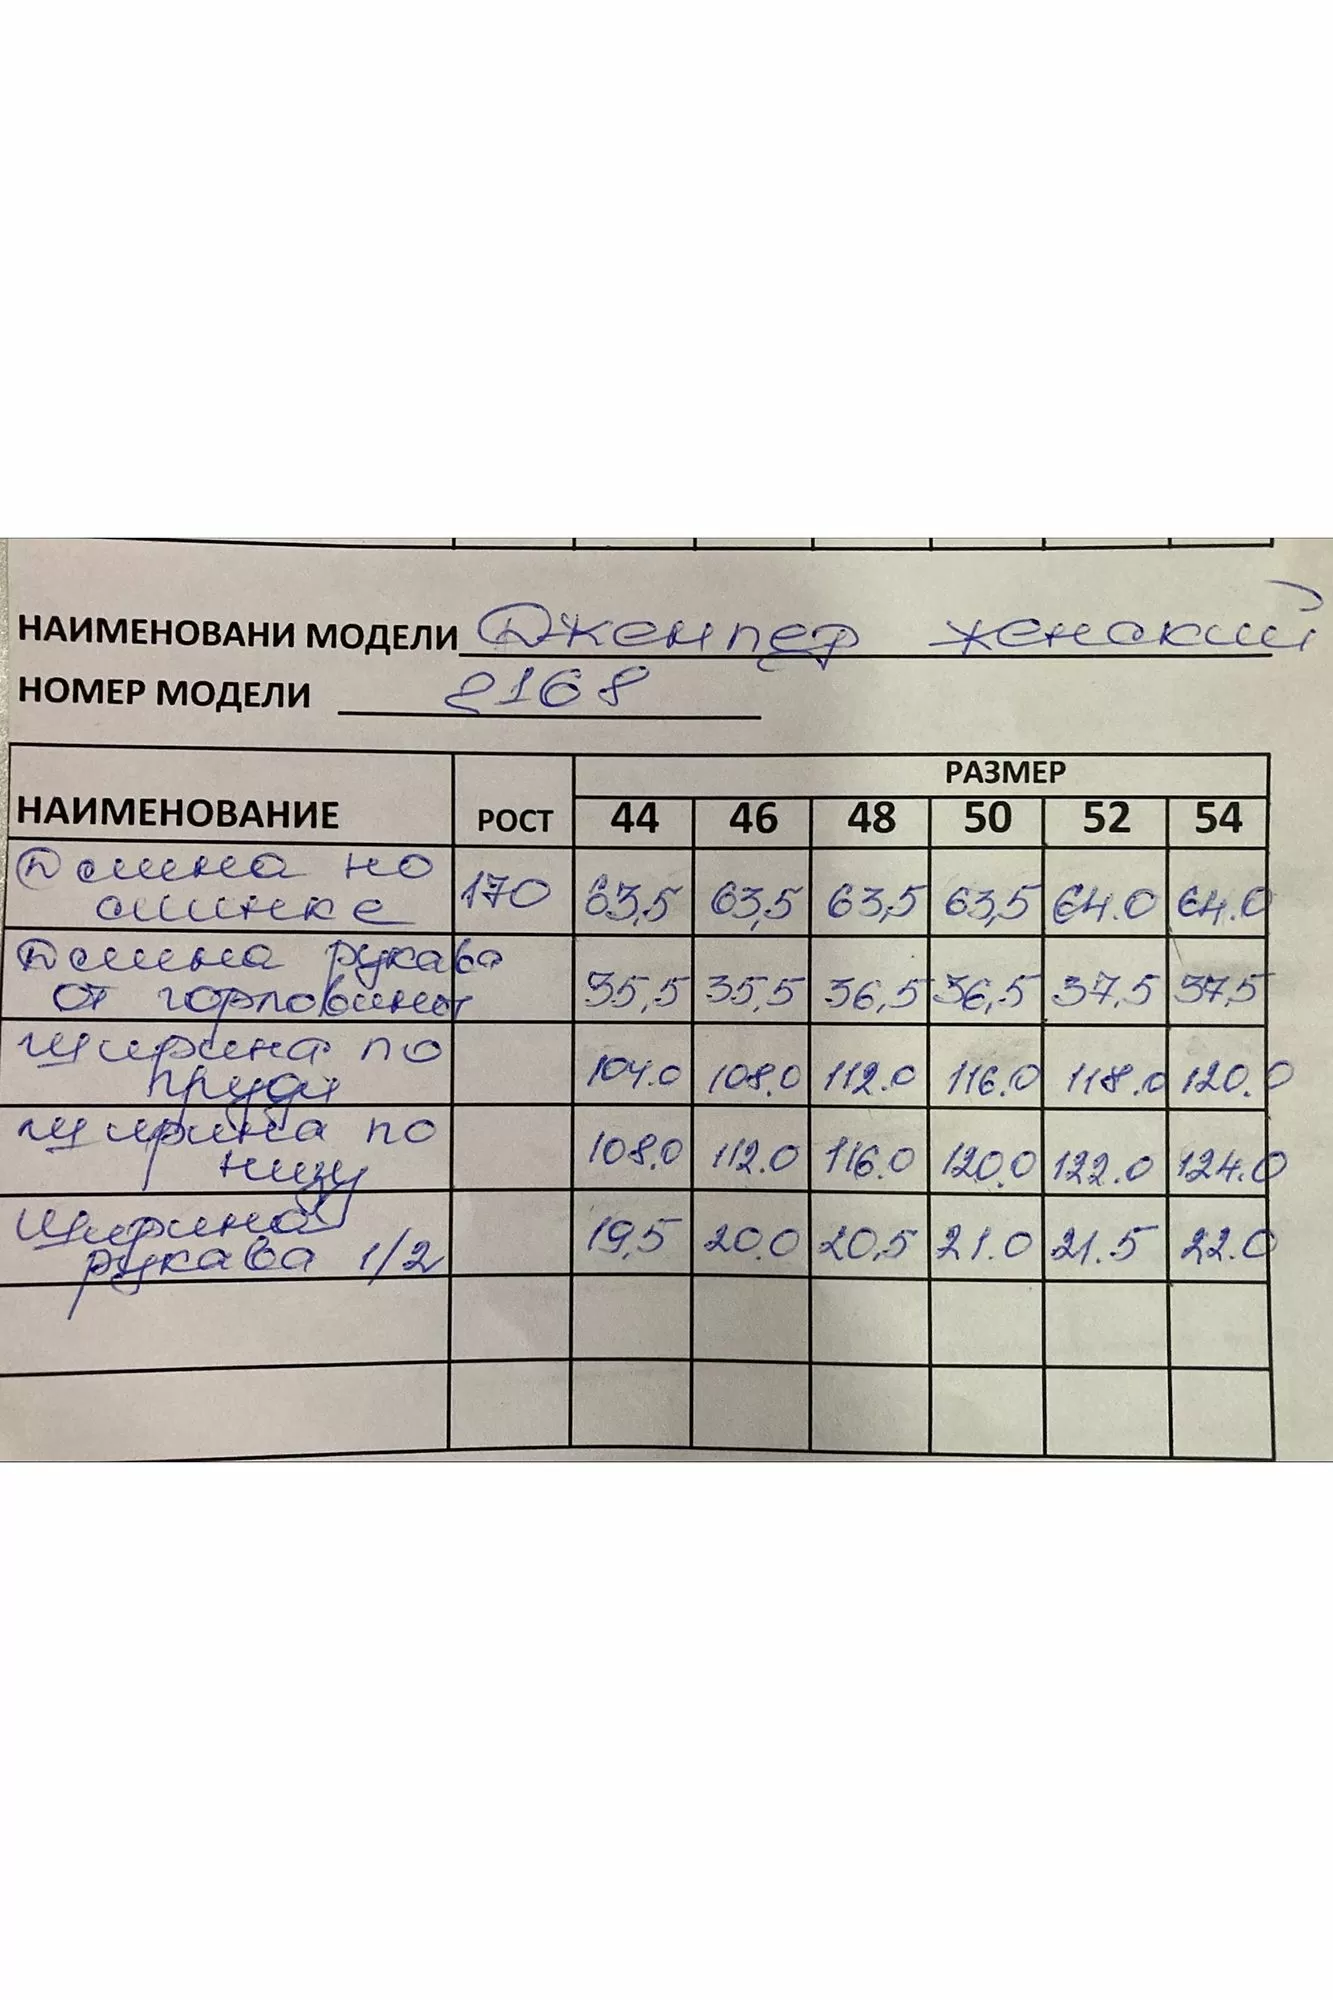 НАИМЕНОВАНИ МОДЕЛИ Джемпер женский
НОМЕР МОДЕЛИ 2168
НАИМЕНОВАНИЕ РОСТ РАЗМЕР
44 46 48 50 52 54
Длина по
спинке 170 63,5 63,5 63,5 63,5 64.0 64.0
Длина рукава
от горловины 35,5 35,5 36,5 36,5 37,5 37,5
Ширина по
груди 104.0 108.0 112.0 116.0 118.0 120.0
Ширина по
низу 108.0 112.0 116.0 120.0 122.0 124.0
Ширина
рукава 1/2 19,5 20.0 20,5 21.0 21.5 22.0